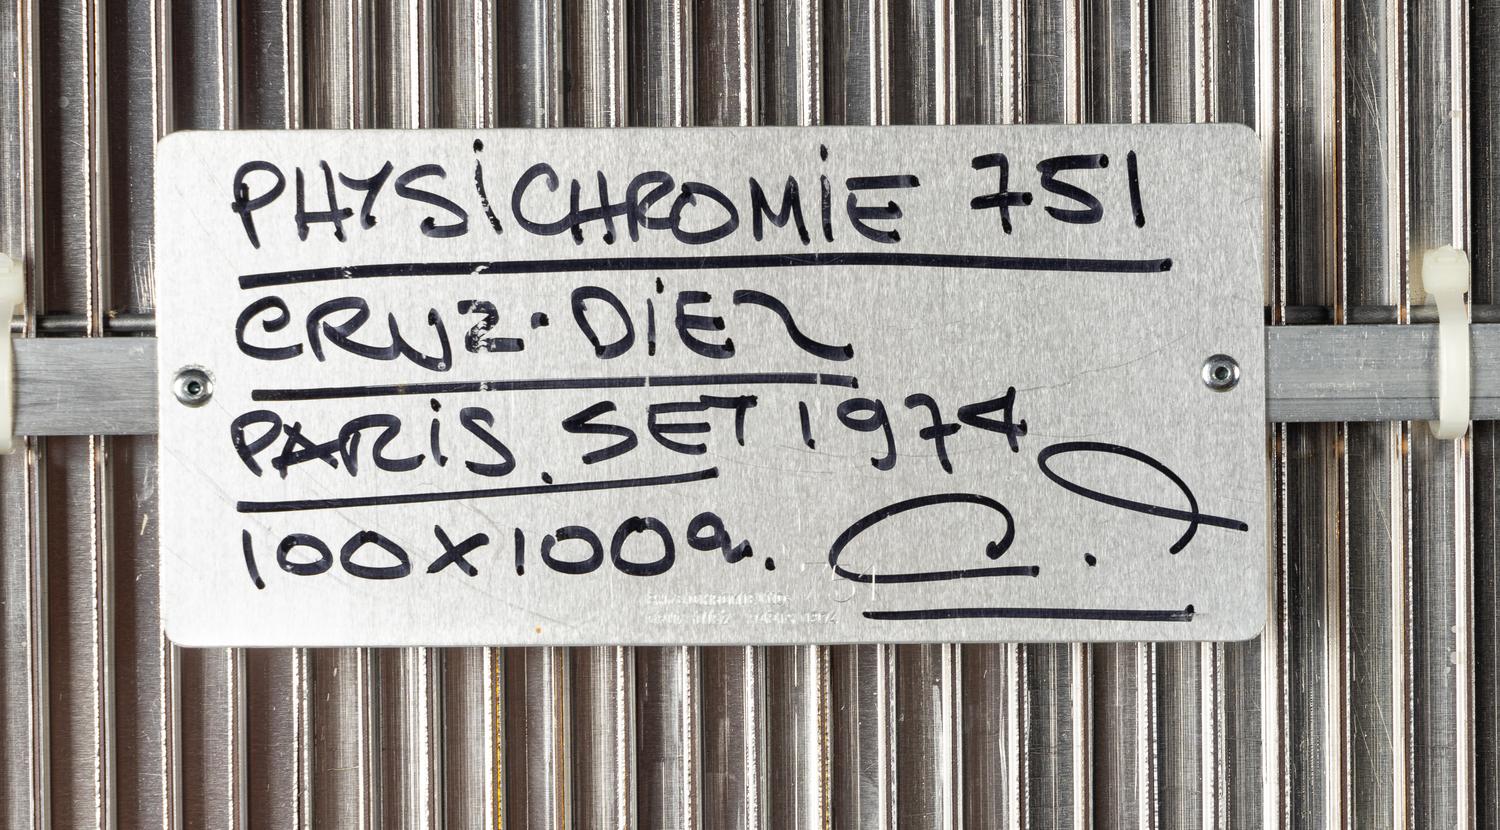 PHYSiCHROMiE 751
CRUZ-DiEZ
PARiS. SET 1974
100X100